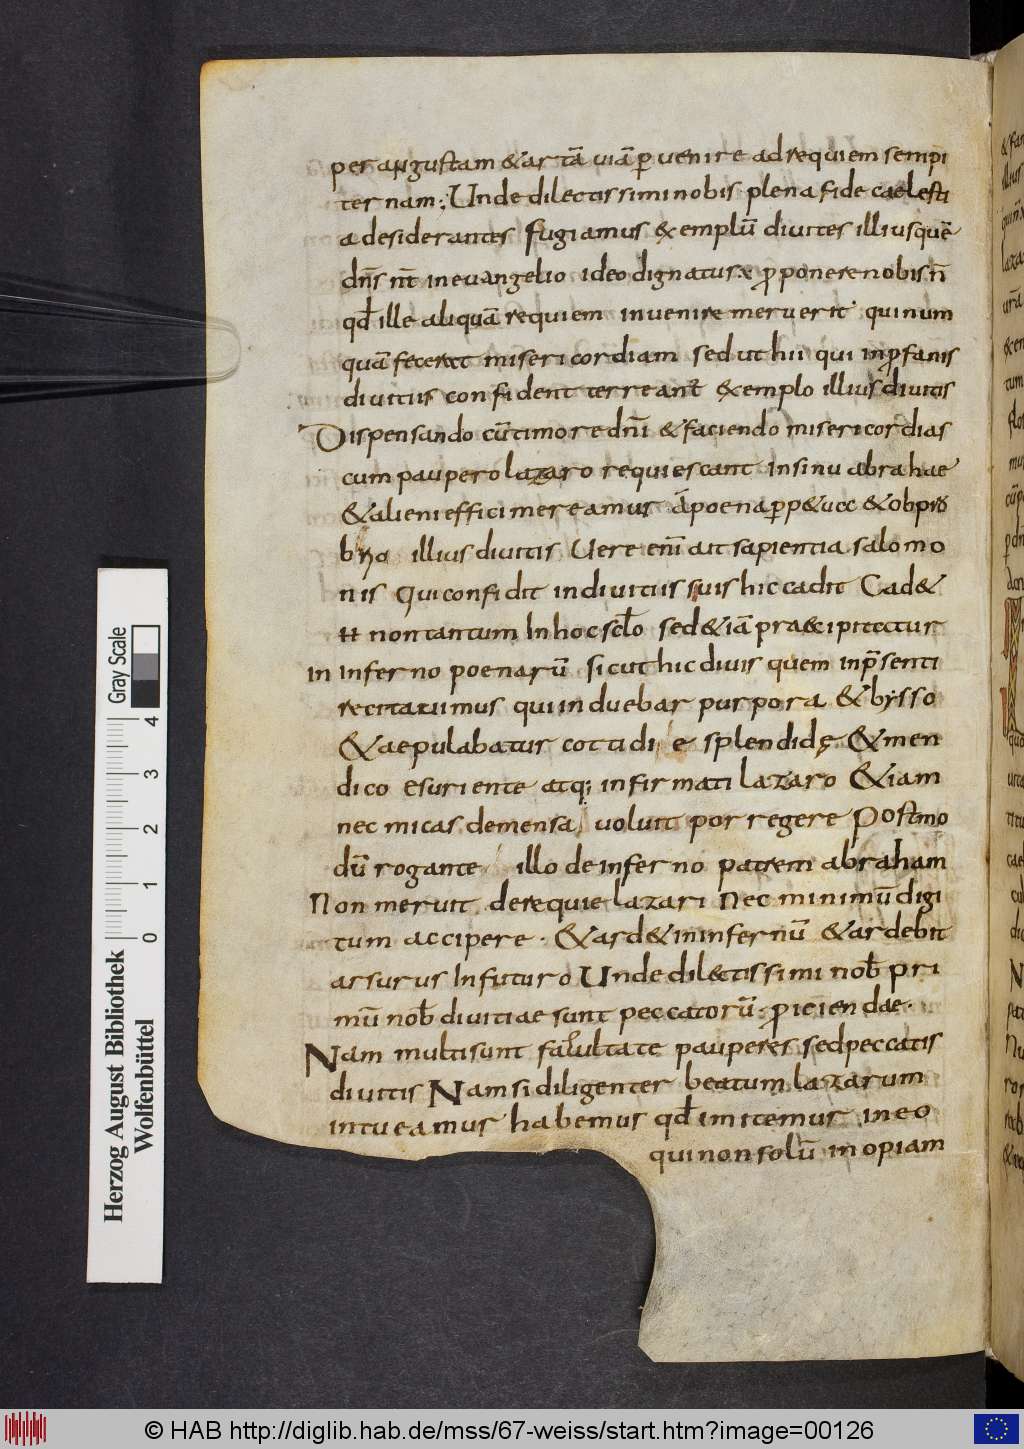 per angustam & artā uiā p uenire ad requiem sempi
ter nam; Unde dilectissimi nobis plena fide caelesti
a desiderantes fugiamus exemplū diuites illius quē
dn̄s nr̄t in euangelio ideo dignatus ē p ponere nobis n̄
qd̄ ille aliquā requiem inuenire meruerit qui num
quā fecerat misericordiam sed ut hii qui in pfanis
diuitiis confident terreant̄ exemplo illius diuitis
Dispensando cū timore dn̄i & faciendo misericordias
cum paupero lazaro requiescant in sinu abrahae
& alieni effici mereamur a poena pp&uae & obprob
brio illius diuitis Uere enī ait sapientia salomo
nis Qui confidit in diuitiis suis hic cadit Cad&
non tantum In hoc sclo sed & iā praecipitatur
in inferno poenarū sicut hic diuis quem in p̄senti
recitauimus qui induebar purpora & bysso
& aepulabatur cottidie splendide & men
dico esuriente atq; infirmati lazaro & iam
nec micas de mensa uoluit porregere Postmo
dū rogante illo de inferno patrem abraham
Non meruit de requie lazari Nec minimū digi
tum accipere. & ard& in infernū & ardebit
arsurus In futuro Unde dilectissimi nob̄ pri
mū nob̄ diuitiae sunt peccatorū. piciendae.
Nam multi sunt facultate pauperes sed peccatis
diuitis Nam si diligenter beatum lazarum
intueamur habemus qd̄ imitemur in eo
qui non solū inopiam
Gray Scale
0 1 2 3 4
Herzog August Bibliothek
Wolfenbüttel
© HAB http://diglib.hab.de/mss/67-weiss/start.htm?image=00126